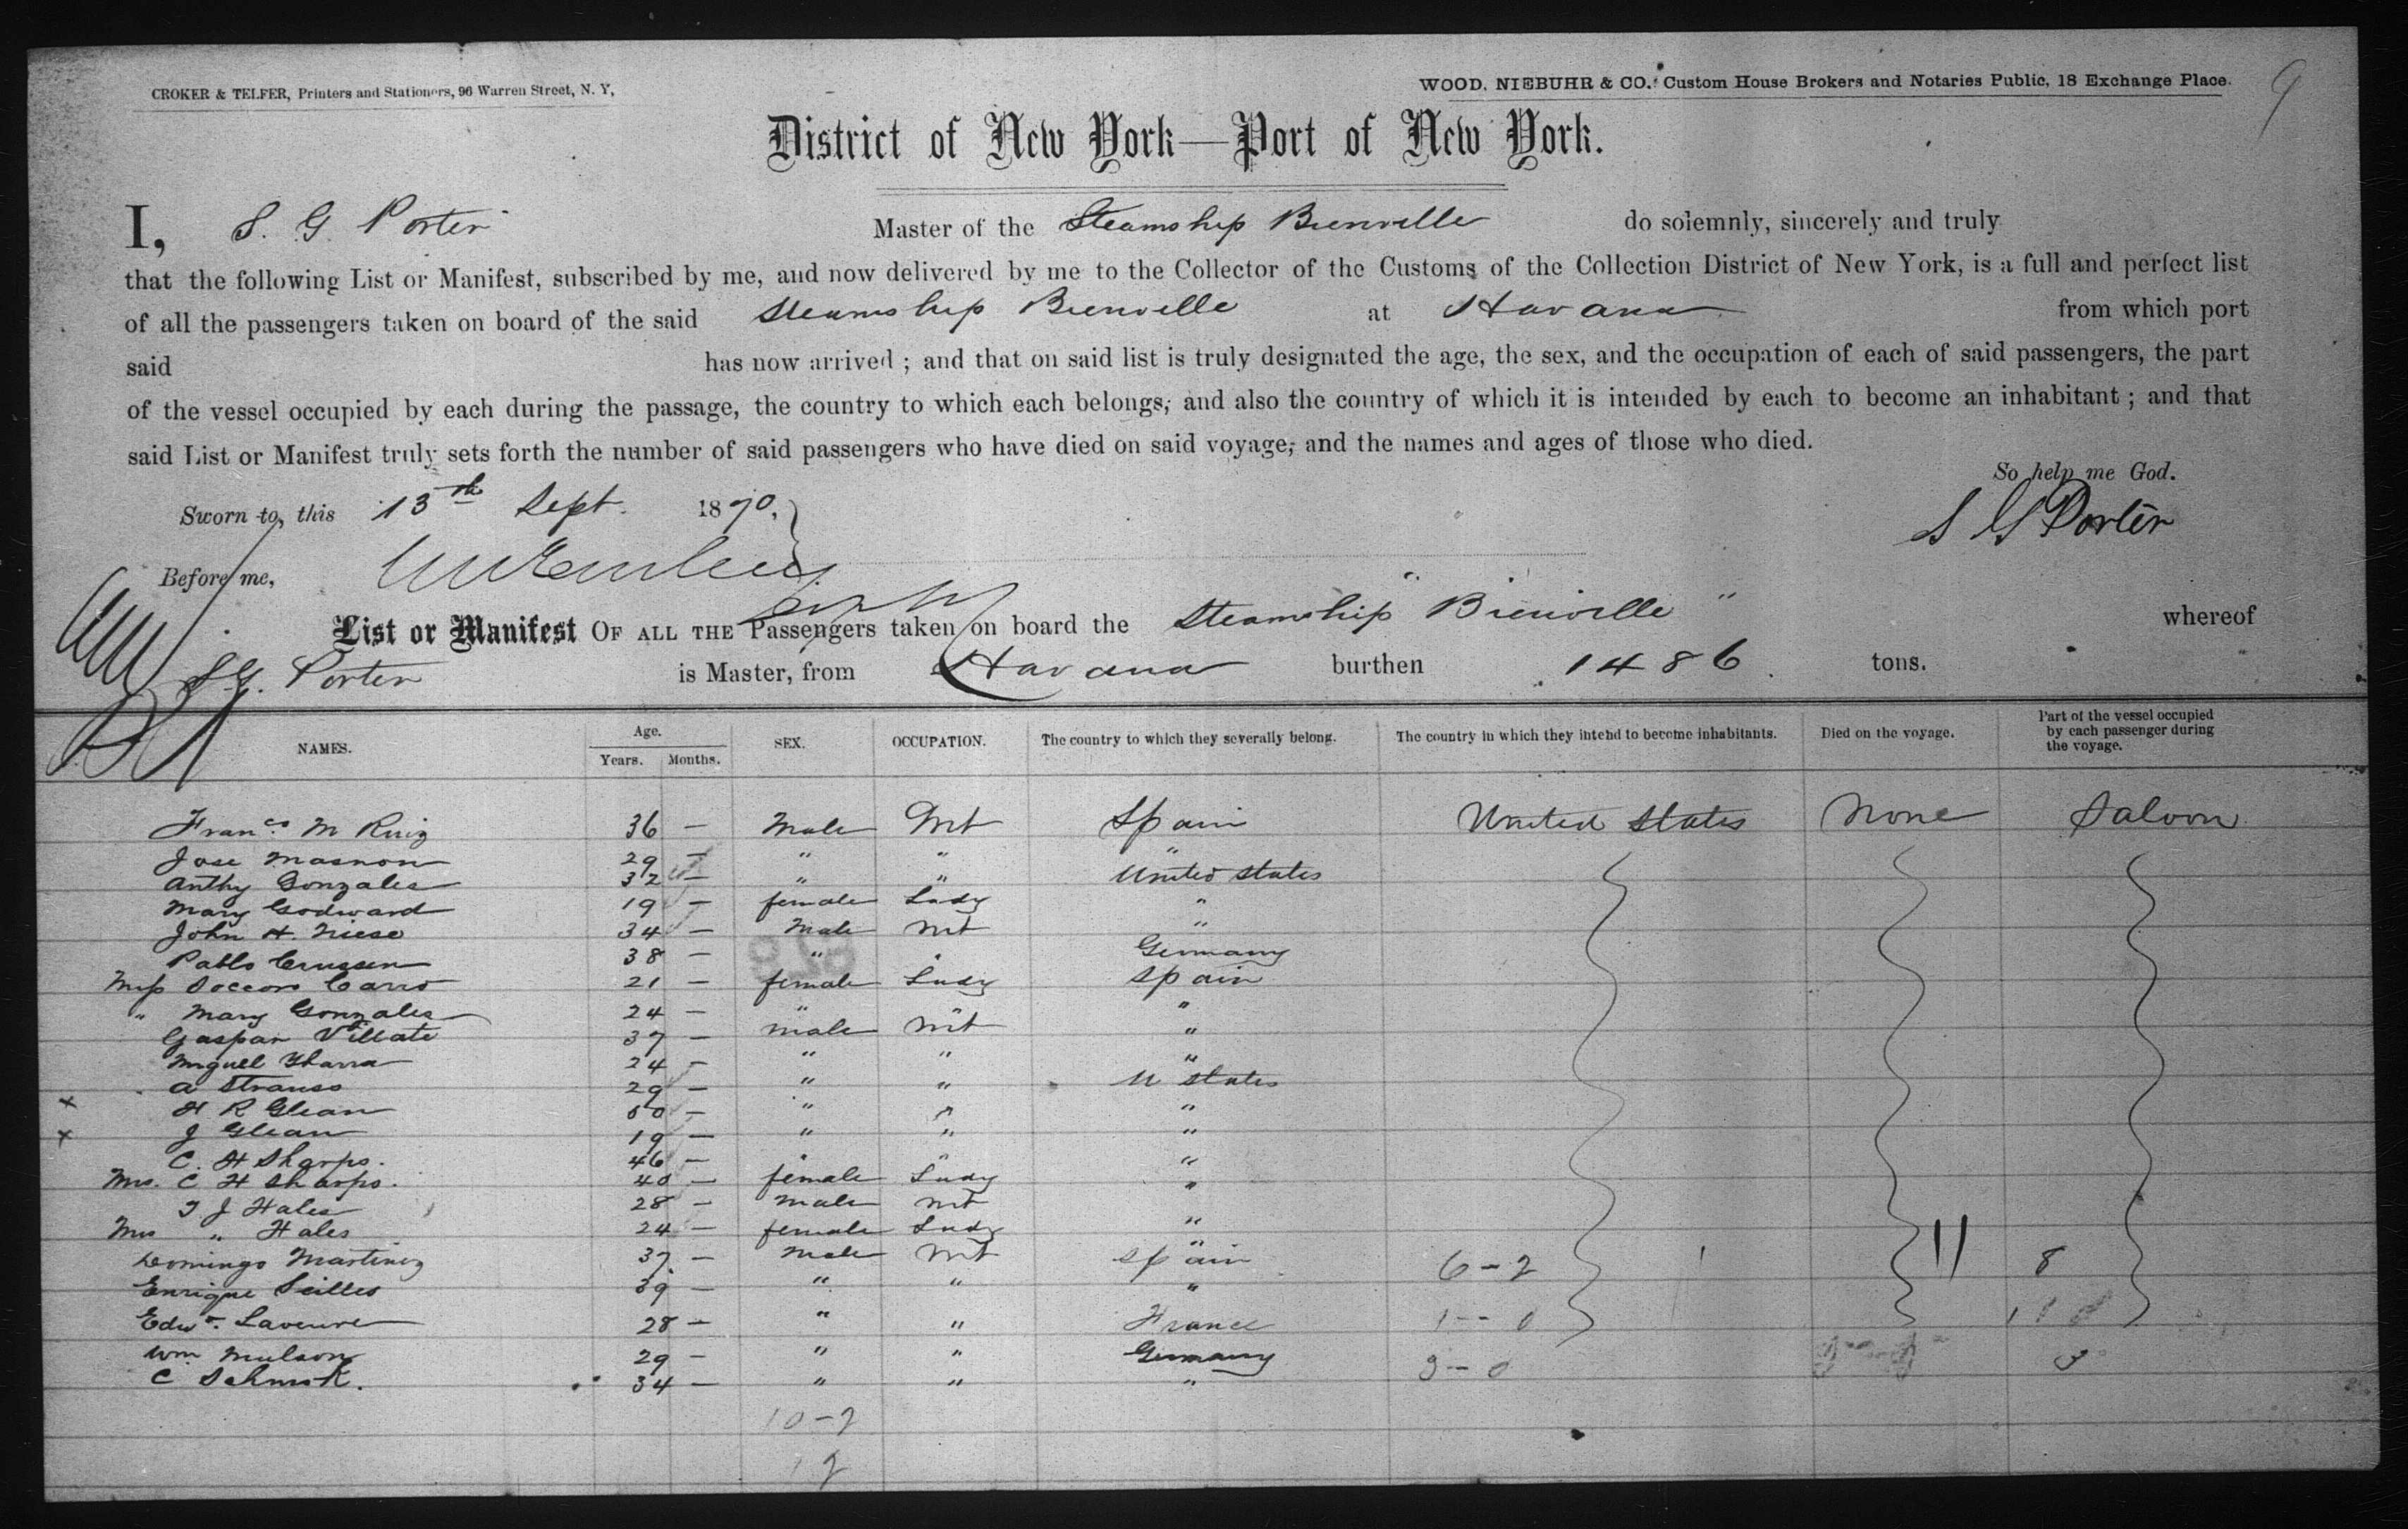 CROKER & TELFER, Printers and Stationers, 96 Warren Street, N. Y,
WOOD, NIEBUHR & CO. Custom House Brokers and Notaries Public, 18 Exchange Place.
9
District of New York—Port of New York.
I, S. G. Porter Master of the Steamship Bienville do solemnly, sincerely and truly
that the following List or Manifest, subscribed by me, and now delivered by me to the Collector of the Customs of the Collection District of New York, is a full and perfect list
of all the passengers taken on board of the said Steamship Bienville at Havana from which port
said has now arrived ; and that on said list is truly designated the age, the sex, and the occupation of each of said passengers, the part
of the vessel occupied by each during the passage, the country to which each belongs, and also the country of which it is intended by each to become an inhabitant ; and that
said List or Manifest truly sets forth the number of said passengers who have died on said voyage, and the names and ages of those who died.
So help me God.
Sworn to, this 13th Sept. 1870,
S G Porter
Before me,
List or Manifest OF ALL THE Passengers taken on board the Steamship "Bienville" whereof
S. G. Porter is Master, from Havana burthen 1486 tons.
NAMES. Age. Years. Months. SEX. OCCUPATION. The country to which they severally belong. The country in which they intend to become inhabitants. Died on the voyage. Part of the vessel occupied by each passenger during the voyage.
Franco. M Ruiz 36 — Male Mt Spain United States None Saloon
Jose Masnon 29 — " " "
Anthy Gonzales 32 — " " United States
Mary Godward 19 — female Lady "
John H. Niese 34 — Male Mt "
Pablo 38 — " " Germany
Miss Soccoro Carro 21 — female Lady Spain
" Mary Gonzales 24 — " " "
Gaspar Villate 37 — male Mt "
Miguel Ybarra 24 — " " "
A Strauss 29 — " " U States
x H R Glean 50 — " " "
x J Glean 19 — " " "
C. H Sharps. 46 — " " "
Mrs. C H Sharps. 40 — female Lady "
T J Hales 28 — Male Mt
Mrs " Hales 24 — female Lady "
Domingo Martinez 37 — Male Mt Spain 6-2 8
Enrique Seilles 39 — " " "
Edwd. Laveure 28 — " " France 1--0 1
Wm Mulson 29 — " " Germany 3-0 3
C Schmidt. 34 — " " "
10-2
12